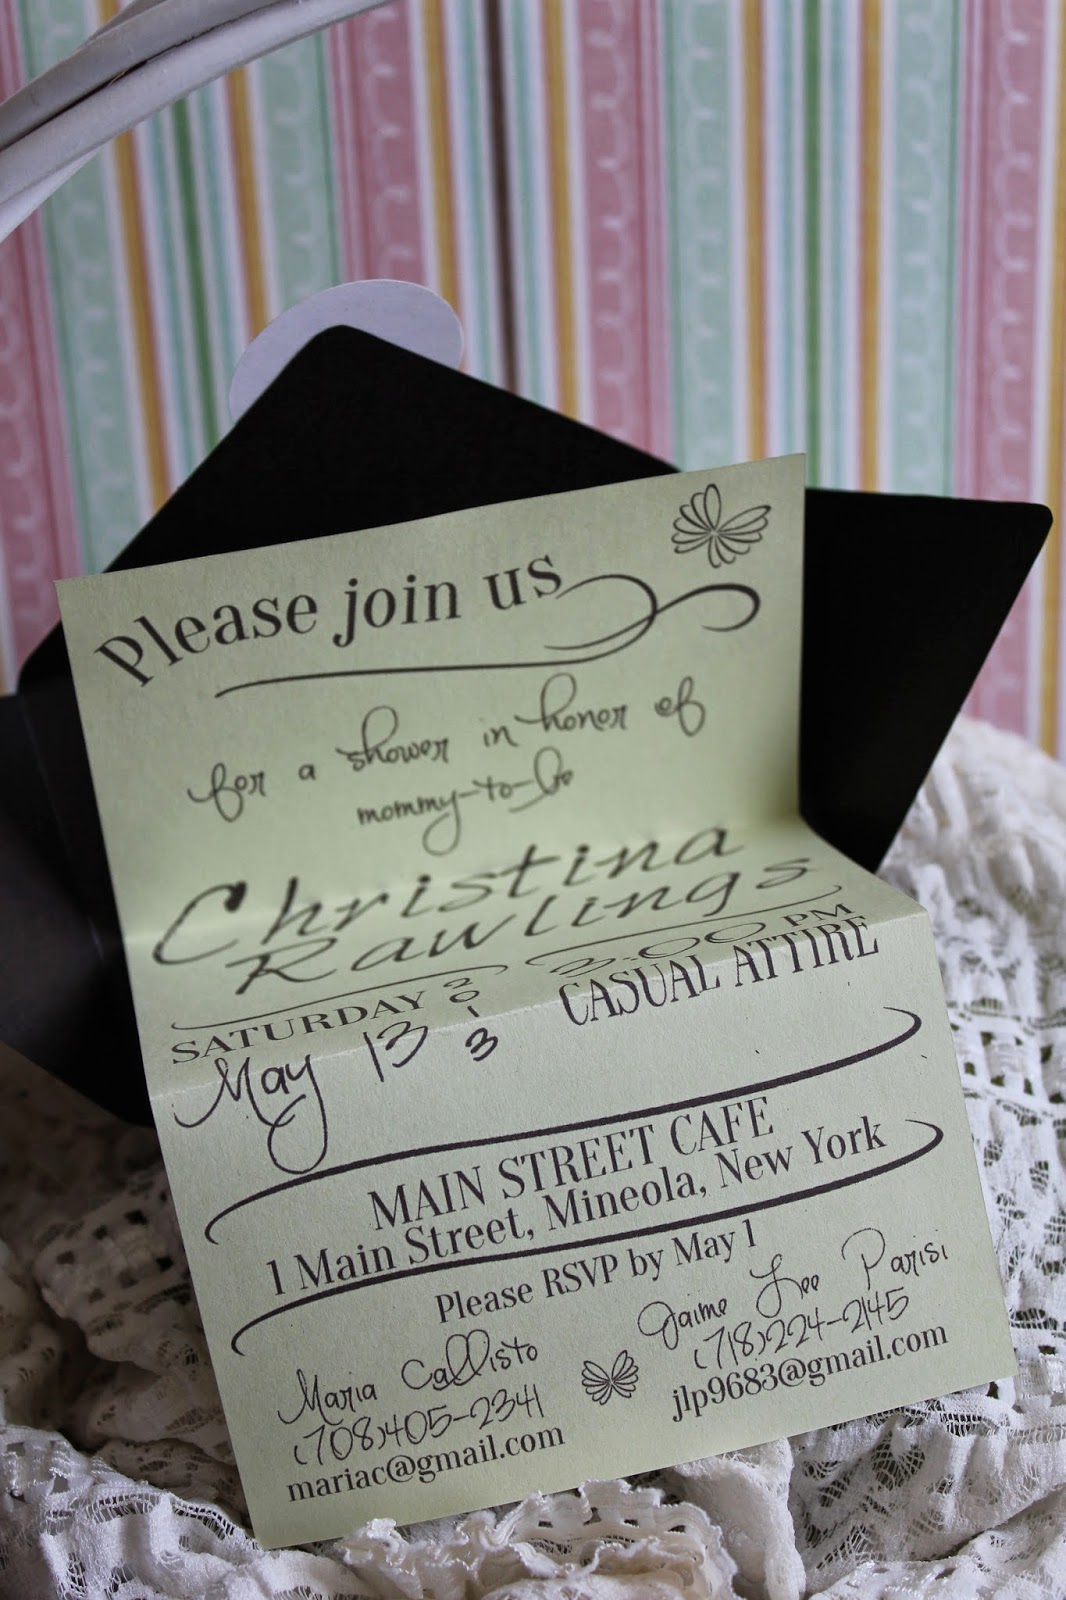 Please join us
for a shower in honor of
mommy-to-be
Christina
Rawlings
SATURDAY 2013 3:00 PM
May 13 CASUAL ATTIRE
MAIN STREET CAFE
1 Main Street, Mineola, New York
Please RSVP by May 1
Maria Callisto
(708)405-2341
mariac@gmail.com
Jaime Lee Parisi
(718)224-2145
jlp9683@gmail.com